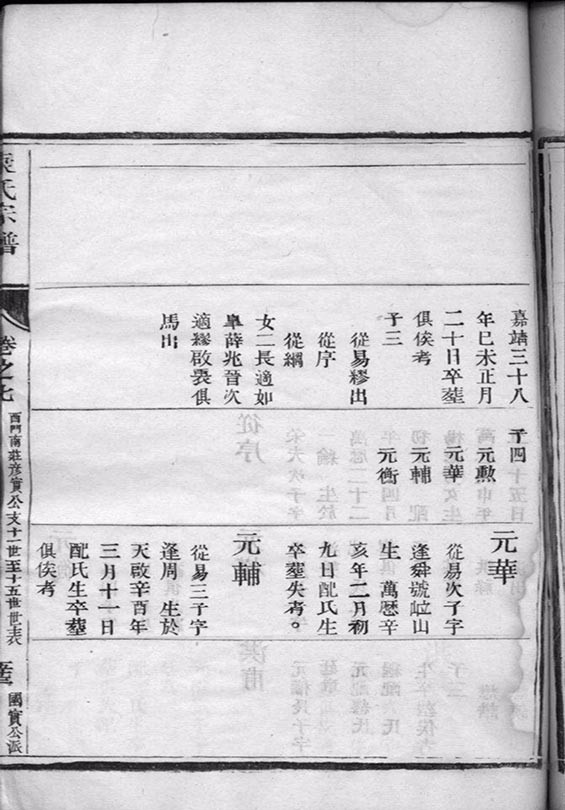 嘉靖三十八
年巳未正月
二十日卒塟
俱俟考
子三
從易繆出
從序
從綱
女二長適如
臯薛兆晉次
適繆啟褁俱
馬出
子四
元勲
元華
元輔
元衡
元華
從易次子字
逢舜號岦山
生 萬厯辛
亥年二月初
九日配氏生
卒塟失考。
元輔
從易三子字
逢周 生於
天啟辛酉年
三月十一日
配氏生卒塟
俱俟考
氏宗譜
卷之七
西門南莊彦實公支十一世至十五世世表
國實公派